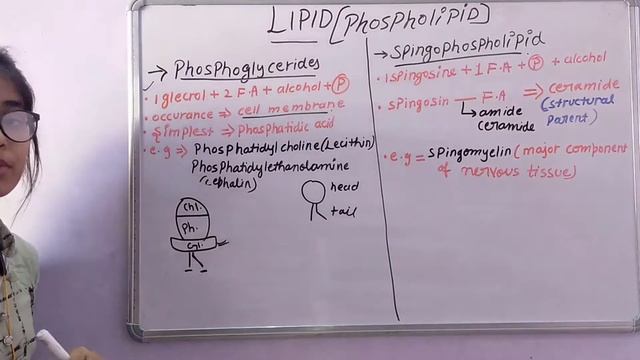 LIPID [PhosPholiPiD]
→ PhosPhoglycerides
· 1 glecrol + 2 F.A + alcohol + P
· occurance ⇒ cell membrane
· Simplest ⇒ Phosphatidic acid
· e.g ⇒ Phosphatidyl choline (Lecithin)
Phosphatidylethanolamine
(cephalin)
head
tail
Chl.
Ph.
Gyl.
→ SPingoPhosPholiPid
· 1 sPingosine + 1 F.A + P + alcohol
· sPingosin — F.A ⇒ ceramide
amide
ceramide
(structural
Parent)
· e.g = sPingomyelin (major component
of nervous tissue)